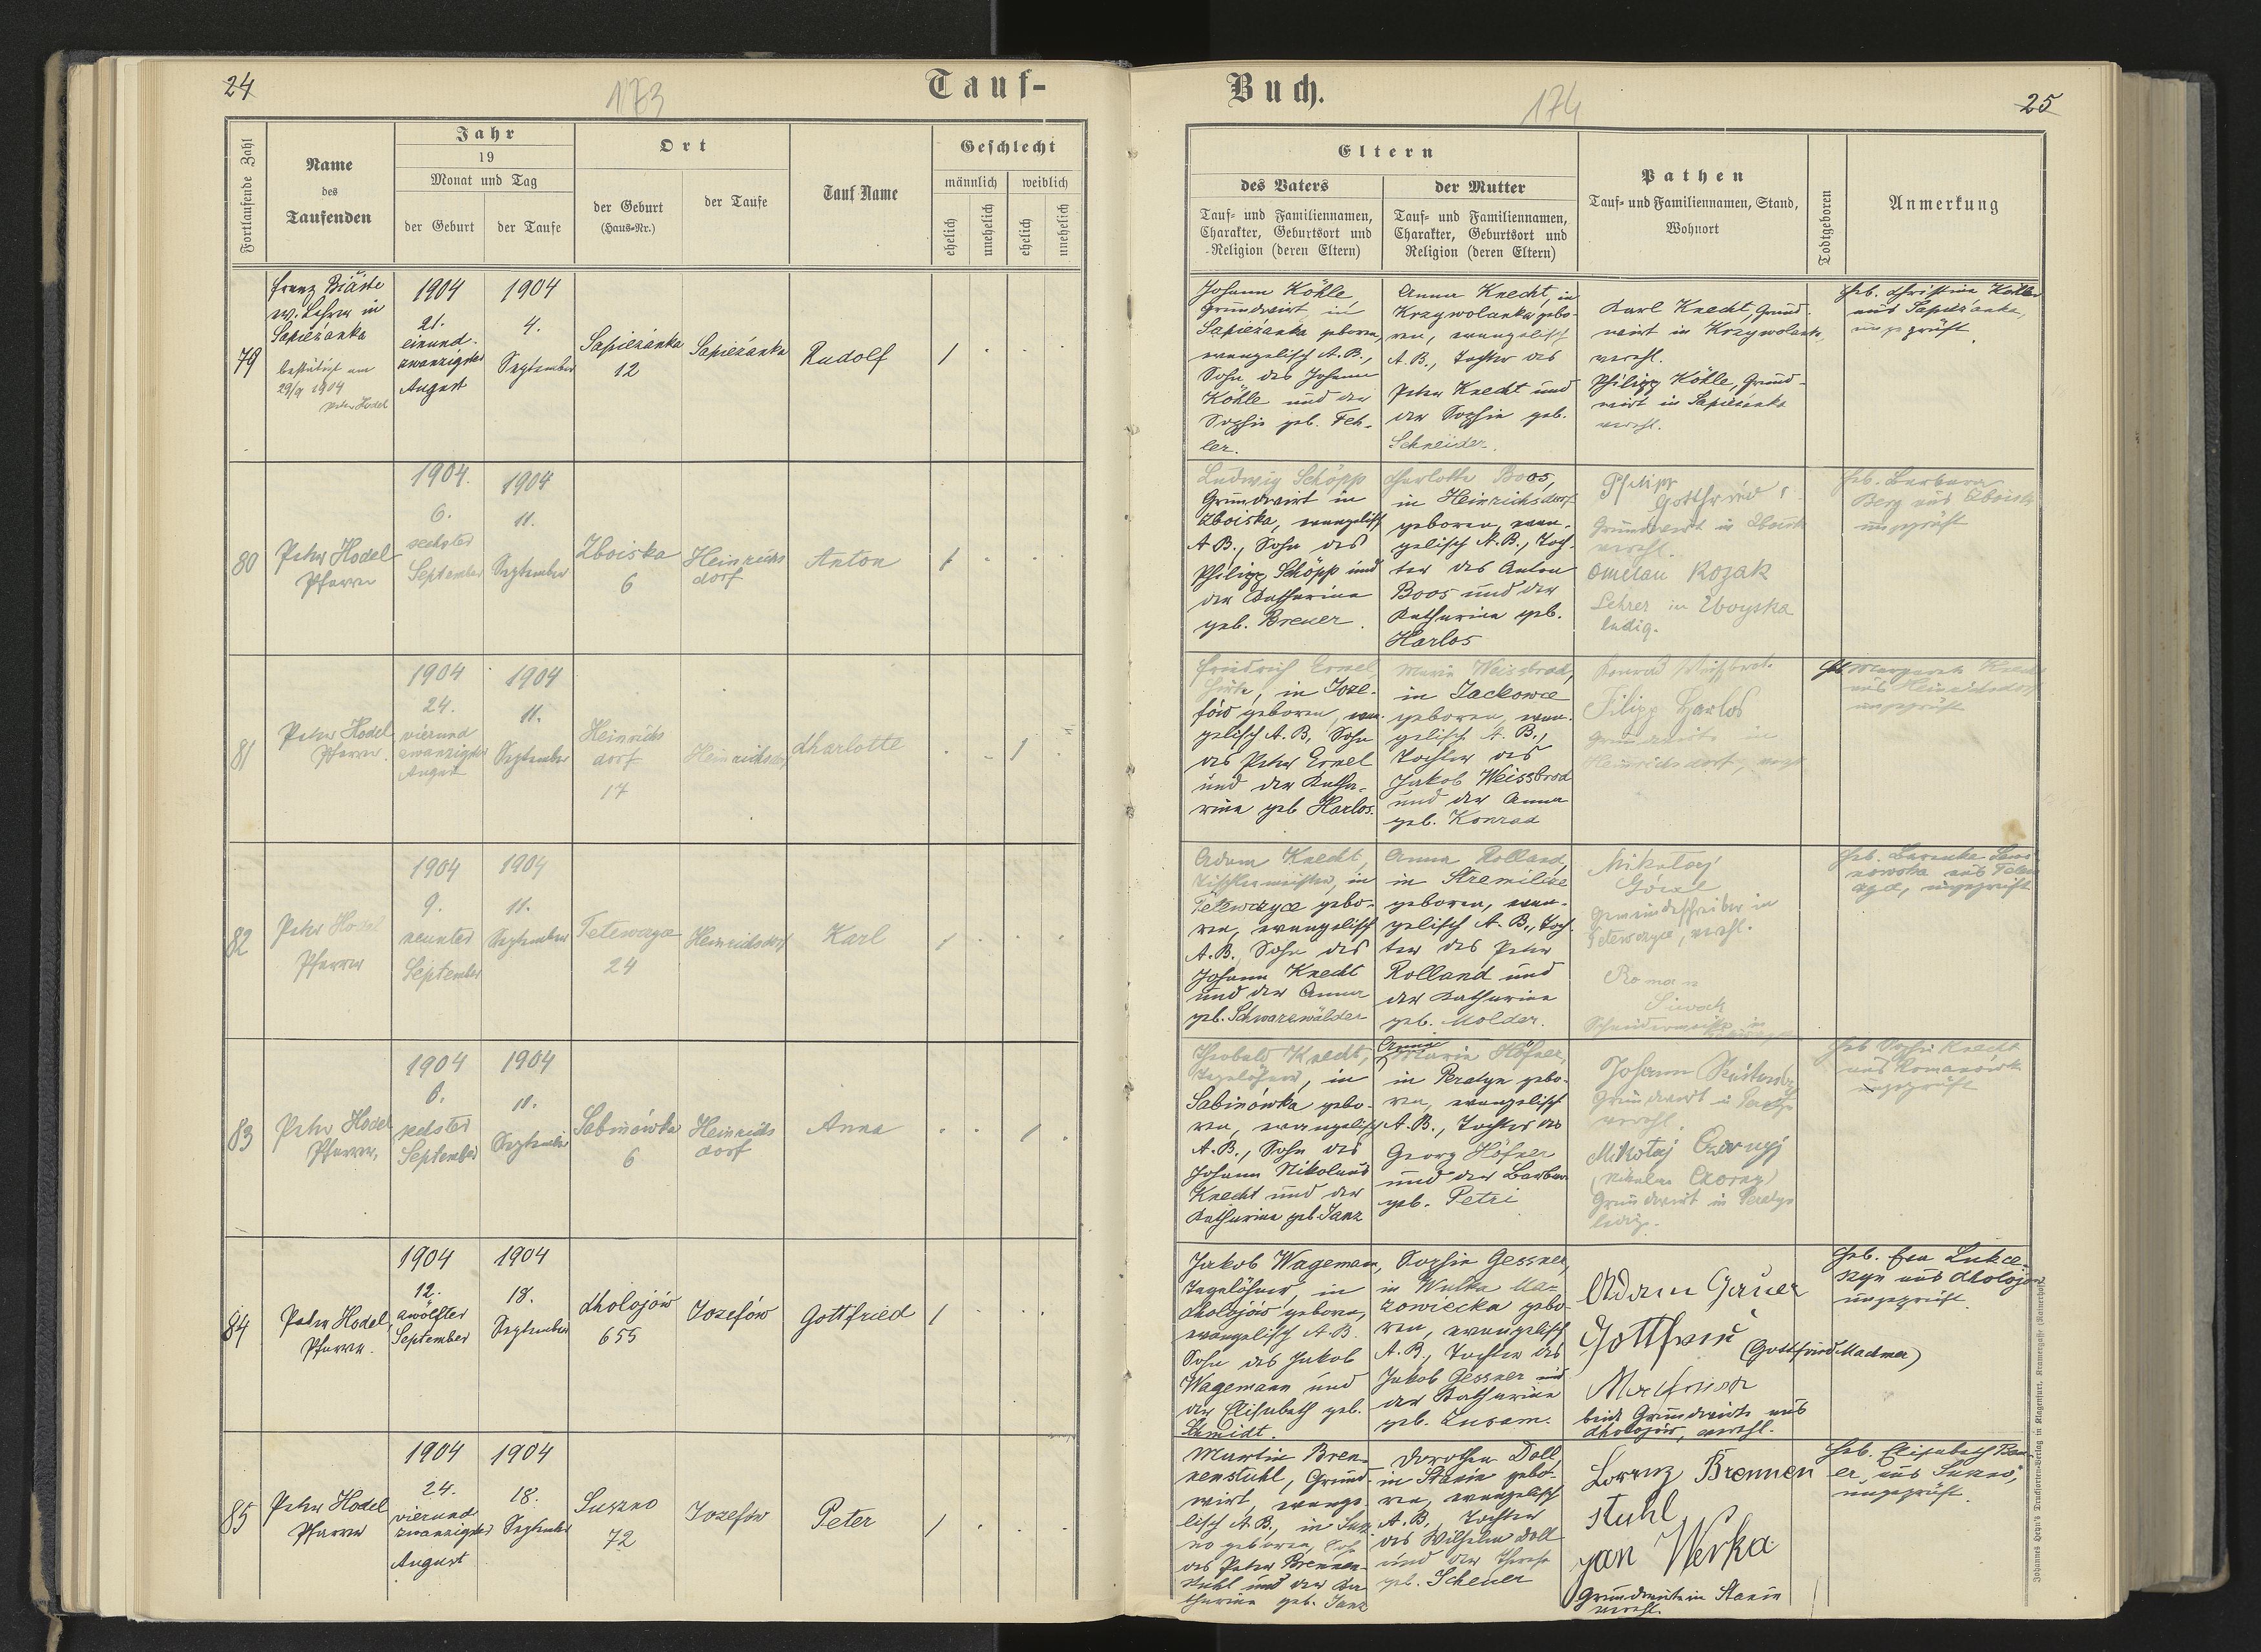 24
173
Tauf-
Fortlaufende Zahl
Name
des
Taufenden
Jahr
19
Monat und Tag
der Geburt
der Taufe
Ort
der Geburt
(Haus-Nr.)
der Taufe
Tauf-Name
Geschlecht
männlich
weiblich
ehelich
unehelich
ehelich
unehelich
79
Franz
w. Lehrer in
Sapieżanka
bestätigt am
29/9 1904
Peter Hodel
1904
21.
einund-
zwanzigster
August
1904
4.
September
Sapieżanka
12
Sapieżanka
Rudolf
1
80
Peter Hodel
Pfarrer
1904.
6.
sechster
September
1904
11.
September
Zboiska
6
Heinrichs
dorf
Anton
1
81
Peter Hodel
Pfarrer.
1904
24.
vierund
zwanzigster
August
1904
11.
September
Heinrichs
dorf
17
Heinrichsdorf
Charlotte
1
82
Peter Hodel
Pfarrer
1904
9.
neunter
September
1904
11.
September
Tetewczyce
24
Heinrichsdorf
Karl
1
83
Peter Hodel
Pfarrer.
1904
6.
sechster
September
1904
11.
September
Sabinówka
6
Heinrichs
dorf
Anna
1
84
Peter Hodel,
Pfarrer.
1904
12.
zwölfter
September
1904
18.
September
Chołojów
655
Józefów
Gottfried
1
85
Peter Hodel
Pfarrer
1904
24.
vierund
zwanzigster
August
1904
18.
September
Suszno
72
Józefów
Peter
1
Buch.
174
25
Eltern
des Vaters
Tauf- und Familiennamen,
Charakter, Geburtsort und
Religion (deren Eltern)
der Mutter
Tauf- und Familiennamen,
Charakter, Geburtsort und
Religion (deren Eltern)
Pathen
Tauf- und Familiennamen, Stand,
Wohnort
Todtgeboren
Anmerkung
Johann Köhle,
Grundwirt, in
Sapieżanka geboren,
evangelisch A.B.,
Sohn des Johann
Köhle und der
Sophie geb. Feh-
ler.
Anna Knecht, in
Krzywolanka gebo-
ren, evangelisch
A.B., Tochter des
Peter Knecht und
der Sophie geb.
Schneider.
Karl Knecht, Grund-
wirt in Krzywolanka,
verehl.
Philipp Köhle, Grund-
wirt in Sapieżanka
verehl.
Heb. Christine Köhle
aus Sapieżanka,
ungeprüft.
Ludwig Schöpp
Grundwirt in
Zboiska, evangelisch
A.B., Sohn des
Philipp Schöpp und
der Katharina
geb. Breuer.
Charlotte Boos,
in Heinrichsdorf
geboren, evan-
gelisch A.B., Toch-
ter des Anton
Boos und der
Katharina geb.
Harlos
Philipp
Gottfried
Grundwirt in Zboiska
verehl.
Omelan Kozak
Lehrer in Zboyska
ledig.
Heb. Barbara
Berg aus Zboiska
ungeprüft
Friedrich Ernel,
Hirte, in Joze-
fów geboren, evan-
gelisch A.B., Sohn
des Peter Ernel
und der Katha-
rina geb. Harlos.
Maria Weissbrod,
in Jackowce
geboren, evan-
gelisch A.B.,
Tochter des
Jakob Weissbrod
und der Anna
geb. Konrad
Filipp Harlos
Grundwirte in
Heinrichsdorf, verehl.
Heb. Margareta Knecht
aus Heinrichsdorf
ungeprüft
Adam Knecht,
Tischlermeister, in
Tetewczyce gebo-
ren, evangelisch
A.B., Sohn des
Johann Knecht
und der Anna
geb. Schwarzwälder
Anna Rolland,
in Stremilcze
geboren, evan-
gelisch A.B., Toch-
ter des Peter
Rolland und
der Katharina
geb. Molder.
Mikołaj
Gemeindeschreiber in
Tetewczyce, verehl.
Roman
Schneidermeister in
ungeprüft
Theobald Knecht,
Tagelöhner, in
Sabinówka gebo-
ren, evangelisch
A.B., Sohn des
Johann Nikolaus
Knecht und der
Katharina geb. Janz
Anna
Maria Höfner,
in Peratyn gebo-
ren, evangelisch
A.B., Tochter des
Georg Höfner
und der Barbara
geb. Petri
Johann
Grundwirt in
verehl.
Mikołaj Czornyj
(Nikolaus Czorny)
Grundwirt in Peratyn
ledig.
Heb. Sophie Knecht
aus Romanówka
ungeprüft
Jakob Wageman,
Tagelöhner, in
Chołojów geboren,
evangelisch A.B.
Sohn des Jakob
Wagemann und
der Elisabeth geb.
Schmidt.
Sophie Gessner,
in Wulka Ma-
zowiecka gebo-
ren, evangelisch
A.B., Tochter des
Jakob Gessner und
der Katharina
geb. Zusam.
Adam Gauer
Gottfried
(Gottfried Machmer)
beide Grundwirte aus
Chołojów, verehl.
Heb. Eva Łukce-
szyn aus Chołojów
ungeprüft.
Martin Bren-
nenstuhl, Grund-
wirt, evange-
lisch A.B., in Susz-
no geboren, Sohn
des Peter Brennen-
stuhl und der Ka-
tharina geb. Janz
Dorothea Doll,
in Stanin gebo-
ren, evangelisch
A.B., Tochter
des Wilhelm Doll
und der Therese
geb. Scheuer
Lorenz Brennen
stuhl
Jan Werka
Grundwirte in Stanin
verehl.
Heb. Elisabeth Bau-
er, aus Suszno,
ungeprüft.